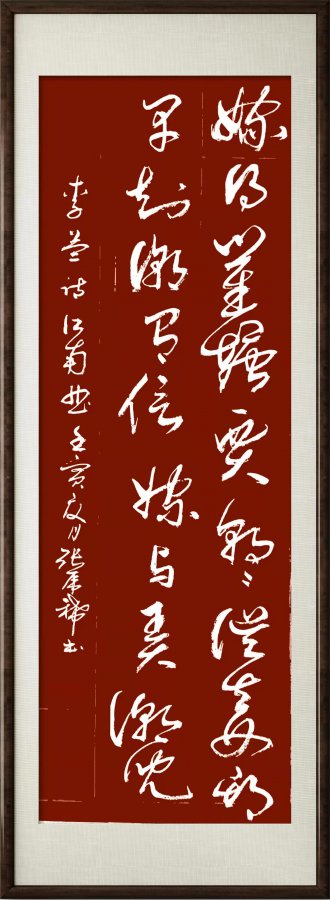 嫁得瞿塘賈朝々誤妾期
早知潮有信嫁与弄潮兒
李益诗江南曲壬寅夏月张书